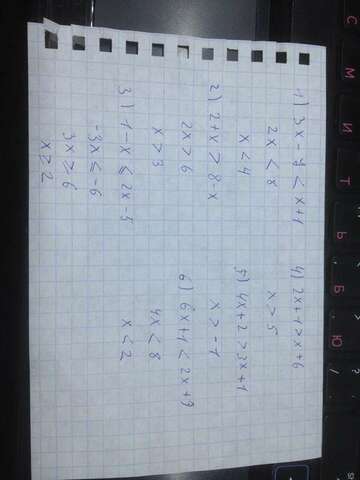 1) 3x - 7 < x+1
2x < 8
x < 4
2) 2+x > 8-x
2x > 6
x > 3
3) 1-x ≤ 2x-5
-3x ≤ -6
3x ≥ 6
x ≥ 2
4) 2x+1 > x+6
x > 5
5) 4x+2 > 3x+1
x > -1
6) 6x+1 < 2x+9
4x < 8
x < 2
С М И Т Ь Б Ю